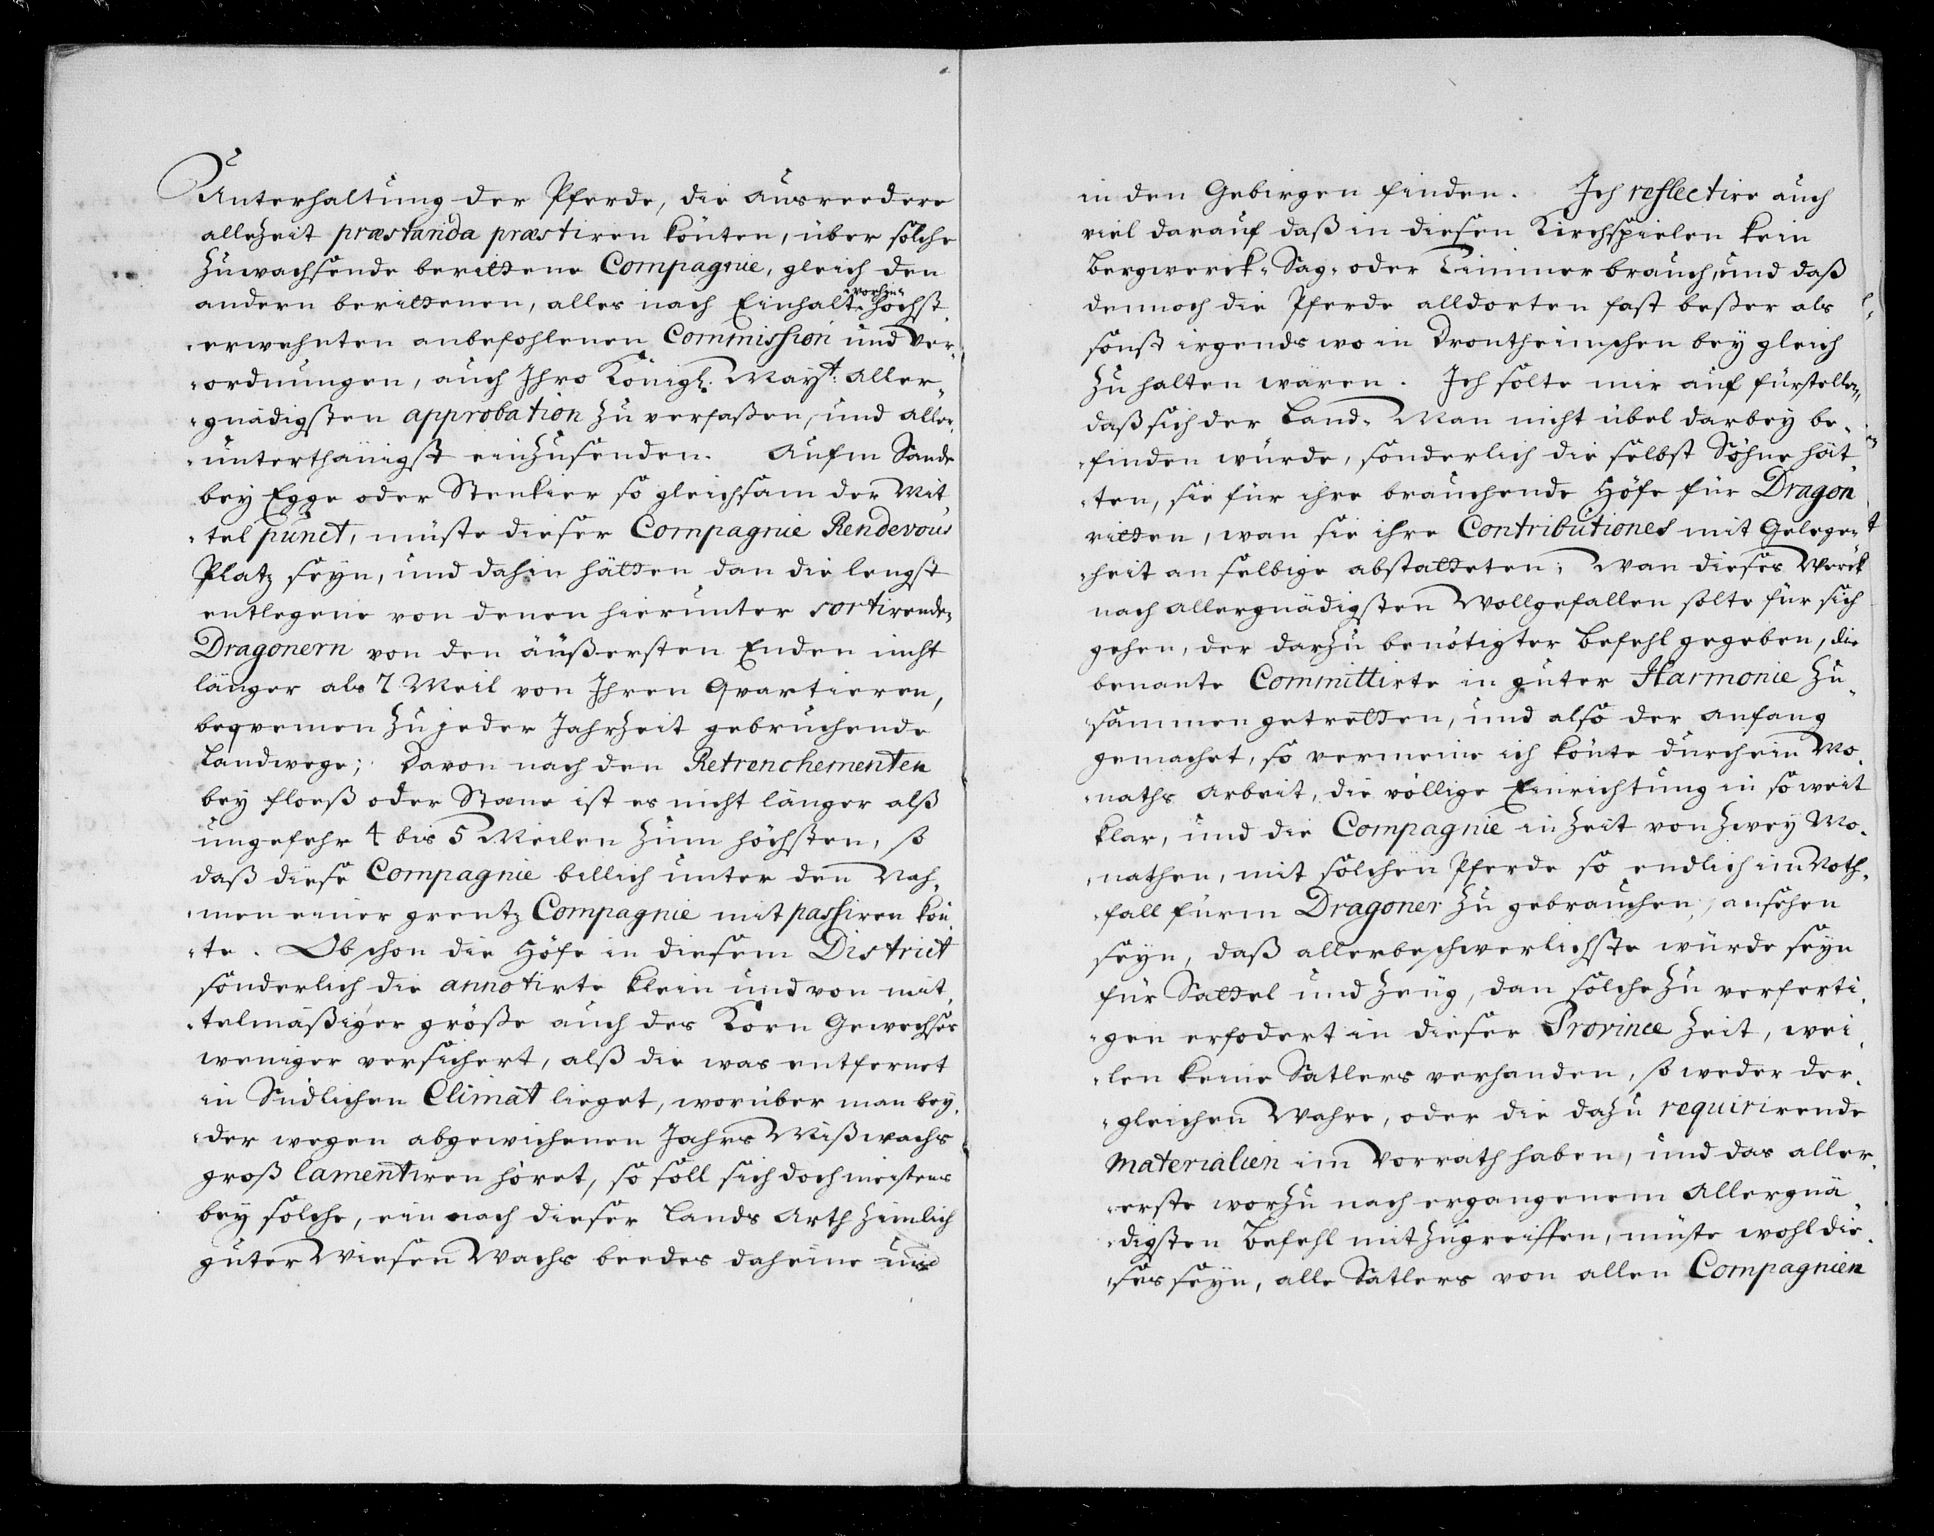 Unterhaltung der Pferde, die ausreedere
allezeit præstanda præstiren könten, über solche
zuwachsende berittene Compagnie, gleich den
andern berittenen, alles nach Einhalt vorhin höchst
erwehnten anbefohlenen Commission und Ver-
ordnungen, auch Ihro Königl. Mayt: Aller-
gnädigsten approbation zu verfassen, und aller-
unterthänigst einzusenden. Aufm Sande
bey Egge oder Stenkier so gleichsam der Mit
tel punct, müste dieser Compagnie Rendevous
Platz seyn, und dahin hätten dan die lengst
entlegene von denen hierunter sortirende
Dragonern von den äußersten Enden nicht
länger als 7 Meil von Ihren Qvartieren,
beqvemen zu jeder Jahrzeit gebruchende
Landwege; Davon nach den Retrenchementen
bey floeß oder Stæne ist es nicht länger alß
ungefehr 4 bis 5 Meilen zum höchsten, so
daß diese Compagnie billich unter den Nah-
men einer grentz Compagnie mit passiren kön
te. Obschon die Höfe in diesem District
sonderlich die annotirte klein und von mit-
telmäßiger größe auch des Korn Gewechses
weniger versichert, alß die was entfernet
in Südlichen Climat lieget, worüber man bey-
der wegen abgewichenen Jahrs Mißwachs
groß lamentiren höret, so soll sich doch meistens
bey solche, ein nach dieser Lands Arth zimlich
guter Wiesen Wachs beedes daheime und
in den Gebirgen finden. Ich reflectire auch
viel darauf daß in diesen Kirchspielen kein
Bergwerck- Sag- oder Timmer brauch, und daß
dennoch die Pferde alldorten fast beßer als
sonst irgends wo in Drontheimschen bey gleich
zu halten wären. Ich solte mir auf fürstellen
daß sich der Land-Man nicht übel darbey be-
finden würde, sonderlich die selbst Söhne hät
ten, sie für ihre brauchende Höfe für Dragon
ritten, wan sie ihre Contributiones mit Gelegen
heit an selbige abstatteten; Wan dieses Werck
nach allergnädigsten Wollgefallen solte für sich
gehen, der darzu benötigter Befehl gegeben, die
benante Committirte in guter Harmonie zu-
sammen getretten, und also der anfang
gemachet, so vermeine ich könte durch ein Mo-
naths Arbeit, die völlige Einrichtung in so weit
klar, und die Compagnie in Zeit von zwey Mo-
nathen, mit solchen Pferde so endlich im Noth-
fall fürm Dragoner zu gebrauchen, ansehen
seyn, daß allerbeschwerlichste würde seyn
für Sattel und Zeug, dan solche zu verferti-
gen erfodert in dieser Province Zeit, wei-
len keine Satlers verhanden, so weder der-
gleichen Wahre, oder die dazu requirirende
Materialien im Vorrath haben, und das aller-
erste worzu nach ergangenem Allergnä
digsten Befehl mit zugreiffen, müste wohl die-
ses seyn, alle Satlers von allen Compagnien